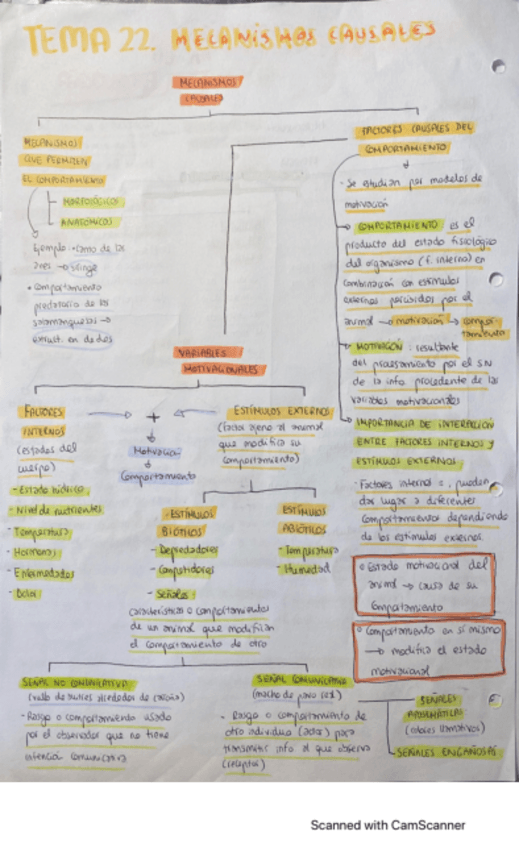 TEMA 22. MECANISMOS CAUSALES
MECANISMOS
CAUSALES
MECANISMOS
QUE PERMITEN
EL COMPORTAMIENTO
MORFOLÓGICOS
ANATÓMICOS
Ejemplo: • Canto de las
aves → siringe
• Comportamiento
predatorio de las
salamanquesas →
en dedos
FACTORES CAUSALES DEL
COMPORTAMIENTO
- Se estudian por modelos de
motivación
→ COMPORTAMIENTO es el
producto del estado fisiológico
del organismo (f. interno) en
combinación con estímulos
externos percibidos por el
animal → motivación → comportamiento
→ MOTIVACIÓN: resultante
del procesamiento por el SN
de la info procedente de las
variables motivacionales
→ IMPORTANCIA DE INTERACCIÓN
ENTRE FACTORES INTERNOS Y
ESTÍMULOS EXTERNOS
- Factores internos pueden
dar lugar a diferentes
comportamientos dependiendo
de los estímulos externos.
• Estado motivacional del
animal → causa de su
comportamiento
• Comportamiento en sí mismo
→ modifica el estado
motivacional
VARIABLES
MOTIVACIONALES
FACTORES
INTERNOS
(estados del
cuerpo)
- Estado hídrico
- Nivel de nutrientes
- Temperatura
- Hormonas
- Enfermedades
- Dolor
+
Motivación
Comportamiento
ESTÍMULOS EXTERNOS
(factor ajeno al animal
que modifica su
comportamiento)
ESTÍMULOS
BIÓTICOS
- Depredadores
- Competidores
- Señales:
características o comportamientos
de un animal que modifican
el comportamiento de otro
ESTÍMULOS
ABIÓTICOS
- Temperatura
- Humedad
SEÑAL NO COMUNICATIVA
(vuelo de buitres alrededor de carroña)
- Rasgo o comportamiento usado
por el observador que no tiene
intención comunicativa
SEÑAL COMUNICATIVA
(macho de pavo real)
- Rasgo o comportamiento de
otro individuo (actor) para
transmitir info al que observa
(receptor)
SEÑALES
APOSEMÁTICAS
(colores llamativos)
SEÑALES ENGAÑOSAS
Scanned with CamScanner